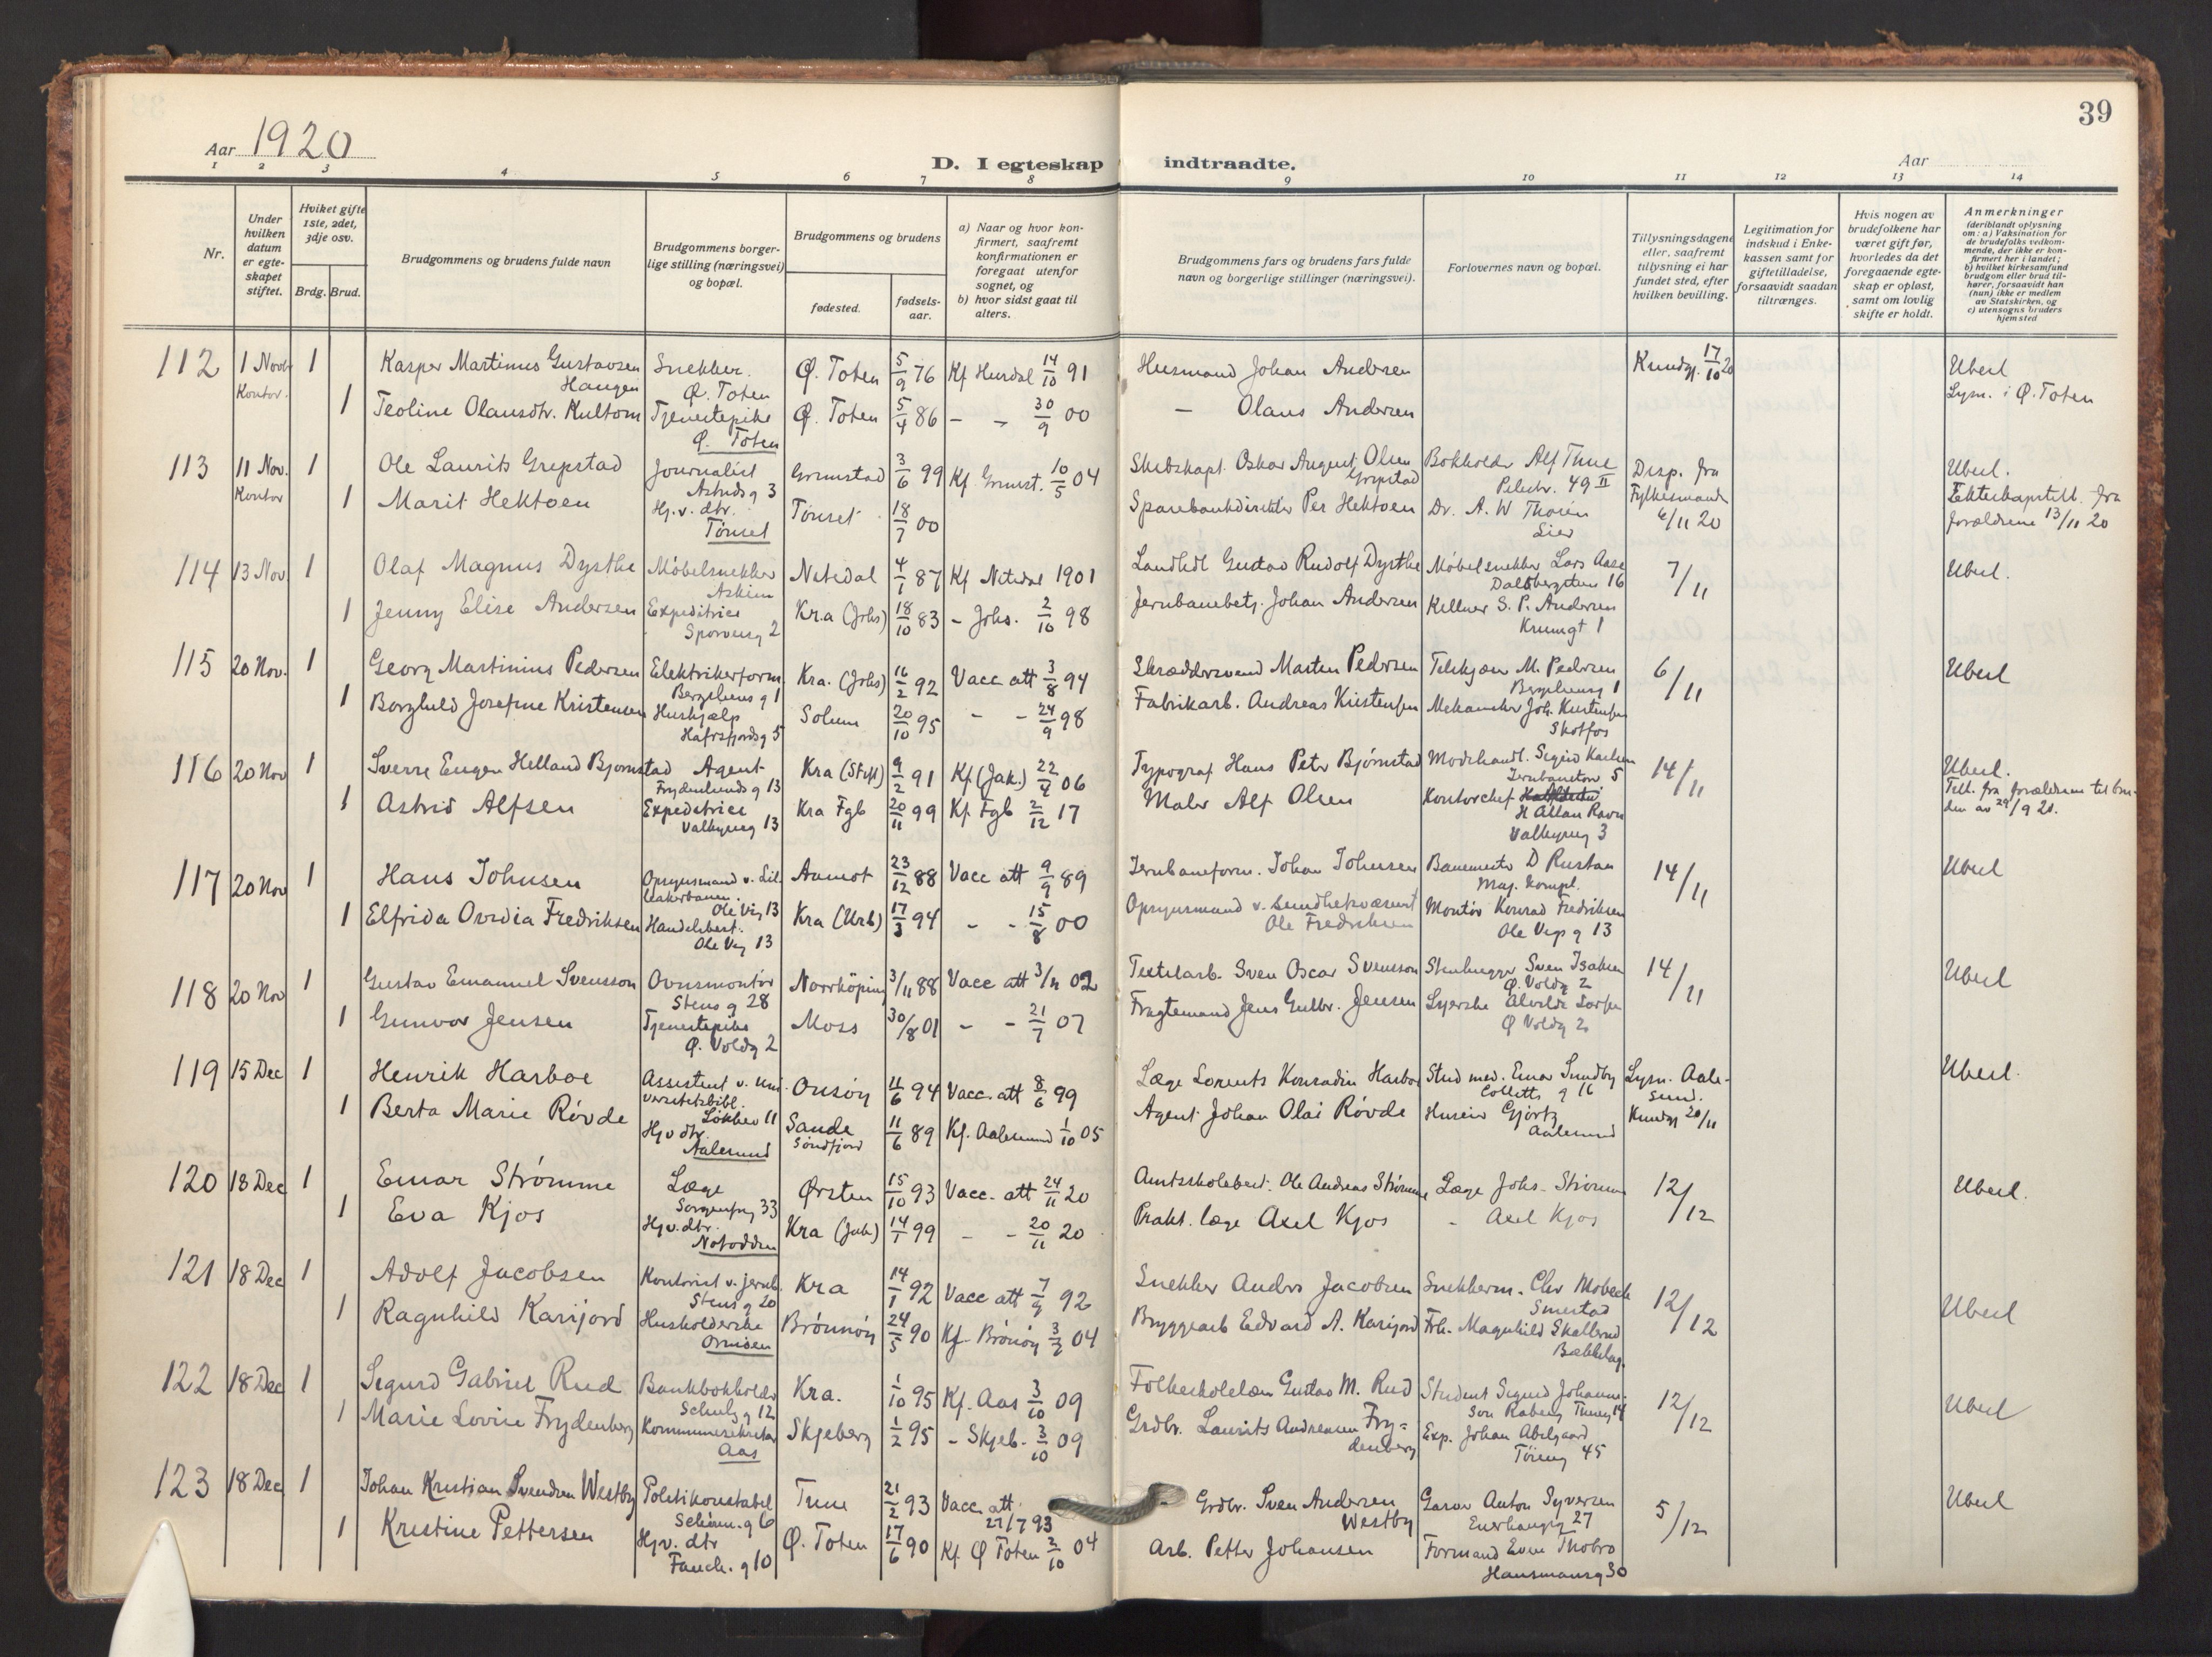 39
Aar 1920
D. I egteskap indtraadte.
Aar
1 2 3 4 5 6 7 8 9 10 11 12 13 14
Nr.
Under hvilken datum er egte-skapet stiftet.
Hviket gifte 1ste, 2det, 3dje osv.
Brdg. Brud.
Brudgommens og brudens fulde navn
Brudgommens borger-lige stilling (næringsvei) og bopæl.
Brudgommens og brudens
fødested.
fødsels-aar.
a) Naar og hvor kon-firmert, saafremt konfirmationen er foregaat utenfor sognet, og
b) hvor sidst gaat til alters.
Brudgommens fars og brudens fars fulde navn og borgerlige stillinger (næringsvei).
Forlovernes navn og bopæl.
Tillysningsdagene eller, saafremt tillysning ei har fundet sted, efter hvilken bevilling.
Legitimation for indskud i Enke-kassen samt for giftetilladelse, forsaavidt saadan tiltrænges.
Hvis nogen av brudefolkene har været gift før, hvorledes da det foregaaende egte-skap er opløst, samt om lovlig skifte er holdt.
Anmerkninger (deriblandt oplysning om: a) Vaksination for de brudefolks vedkom-mende, der ikke er kon-firmert her i landet; b) hvilket kirkesamfund brudgom eller brud til-hører, forsaavidt han (hun) ikke er medlem av Statskirken, og c) utensogns bruders hjemsted
112 1 Novb Kontor. 1 Kasper Martinus Gustavsen Haugen Snekker. Ø. Toten Ø. Toten 5/9 76 Kf Hurdal 14/10 91 Husmand Johan Andersen Kundg. 17/10 20 Ubesl Lysn. i Ø. Toten
1 Teoline Olausdtr. Kultom Tjenestepike Ø. Toten Ø. Toten 5/4 86 - - 30/9 00 - Olaus Andersen
113 11 Nov. Kontor 1 Ole Laurits Grepstad Journalist Astrids g 3 Grimstad 3/6 99 Kf. Grimst. 10/5 04 Skibskapt. Oskar August Olsen Grepstad Bokholder Alf Thue Pilestr. 49 II Disp. fra Fylkesmand 6/11 20 Ubesl. Ekteskapstill. fra forældrene 13/11 20
1 Marit Hektoen Hj. v. dtr. Tønset Tønset 18/7 00 Sparebankdirektør Per Hektoen Dr. A. W Thoren Lier
114 13 Nov. 1 Olaf Magnus Dysthe Møbelsnekker Askim Nitedal 4/1 87 Kf Nitedal 1901 Landhdl Gustav Rudolf Dysthe Møbelsnekker Lars Aase Dalsbergstien 16 7/11 Ubesl.
1 Jenny Elise Andersen Expeditrice Sporveisg 2 Kr.a (Johs) 18/10 83 - Johs. 2/10 98 Jernbanebetj. Johan Andersen Kellner S. P. Andersen Krumgt 1
115 20 Nov. 1 Georg Martinius Pedersen Elektrikerform. Bergsliens g 1 Kra. (Johs) 16/2 92 Vacc att 3/8 94 Skræddersvend Marten Pedersen M. Pedersen Bergsliensg 1 6/11 Ubesl
1 Borghild Josefine Kristensen Hushjælp Hafrsfjordsg 5 Solum 20/10 95 - - 24/9 98 Fabrikarb. Andreas Kristensen Mekaniker Joh. Kristensen Skotfos
116 20 Nov 1 Sverre Eugen Helland Bjørnstad Agent Frydenlunds g 13 Kra 9/2 91 Kf (Jak.) 22/4 06 Typograf Hans Peter Bjørnstad Modehandl. Sigrid Karlsen Jernbanetorv 5 14/11 Ubesl. Till. fra forældrene til bruden av 29/9 20.
1 Astrid Alfsen Expeditrice Valkyrieg 13 Kra Fgb 20/11 99 Kf Fgb 2/12 17 Maler Alf Olsen Kontorchef H Allan Ravn Valkyrieg 3
117 20 Nov 1 Hans Johnsen Opsynsmand v. Lilleakerbanen. Ole Vig 13 Aamot 23/12 88 Vacc att 9/9 89 Jernbaneform. Johan Johnsen Banemester D Rustan Maj. kompl. 14/11 Ubesl
1 Elfrida Ovidia Fredriksen Handelsbest. Ole Vig 13 Kra (Urb) 17/3 94 - - 15/8 00 Opsynsmand v. Sundhetsvæsenet Ole Fredriksen Montør Konrad Fredriksen Ole Vigs g 13
118 20 Nov 1 Gustav Emanuel Svensson Ovnsmontør Stens g 28 Norrköping 3/11 88 Vacc att 3/11 02 Textilarb. Sven Oscar Svensson Stenhugger Sven Isaksen Ø. Voldg 2 14/11 Ubesl
1 Gunvor Jensen Tjenestepike Ø. Voldg 2 Moss 30/8 01 - - 21/7 07 Fragtemand Jens Gulbr. Jensen Syerske Ø Voldg 2
119 15 Dec 1 Henrik Harboe Assistent v. universitetsbibl. Løkkev 11 Onsøy 11/6 94 Vacc. att 8/6 99 Læge Lorents Konradin Harboe Stud med. Einar Sundby Colletts g 16 Lysn. Aalesund. Kundg 20/11 Ubesl.
1 Berta Marie Røvde Hj v dtr. Aalesund Sande Søndfjord 11/6 89 Kf. Aalesund 1/10 05 Agent Johan Olai Røvde Husein Gjørtz Aalesund
120 18 Dec 1 Einar Strømme Læge Sorgenfrig 33 Ørsten 15/10 93 Vacc. att 24/11 20 Amtsskolebest. Ole Andreas Strømme Læge Johs. Strømme 12/12 Ubesl.
1 Eva Kjos Hj. v. dtr. Notodden Kra (Jak) 14/1 99 - - 20/11 20 Prakt. læge Axel Kjos - Axel Kjos
121 18 Dec 1 Adolf Jacobsen Kontorist v. jernb. Stens g 20 Kra 14/1 92 Vacc att 7/9 92 Snekker Anders Jacobsen Snekkerm. Chr Mobæk Smestad 12/12 Ubesl
1 Ragnhild Karijord Husholderske Ormøen Brønnøy 24/5 90 Kf. Brønøy 3/7 04 Bryggearb Edvard A. Karijord Frk. Magnhild Skallerud Bækkelag.
122 18 Dec 1 Sigurd Gabriel Rud Bankbokholder Schulz g 12 Kra. 1/10 95 Kf. Aas 3/10 09 Folkeskolelær. Gustav M. Rud Student Sigurd Johannesson Raberg 12/12 Ubesl
1 Marie Lovise Frydenberg Kommunesekretær Aas Skjeberg 1/2 95 - Skjeb. 3/10 09 Grdbr. Laurits Andreassen Frydenberg Exp. Johan Abelgaard 45
123 18 Dec 1 Johan Kristian Svendsen Westby Politikonstabel Schøun. g 6 Tune 21/2 93 Vacc. att. 27/7 93 Grdbr. Sven Andersen Westby Garver Anton Syversen Enerhaugg 27 5/12 Ubesl
1 Kristine Pettersen Hj. v. dtr Fauch. g 10 Ø. Toten 17/6 90 Kf Ø Toten 2/10 04 Arb. Petter Johansen Formand Even Thobro Hausmansg 30